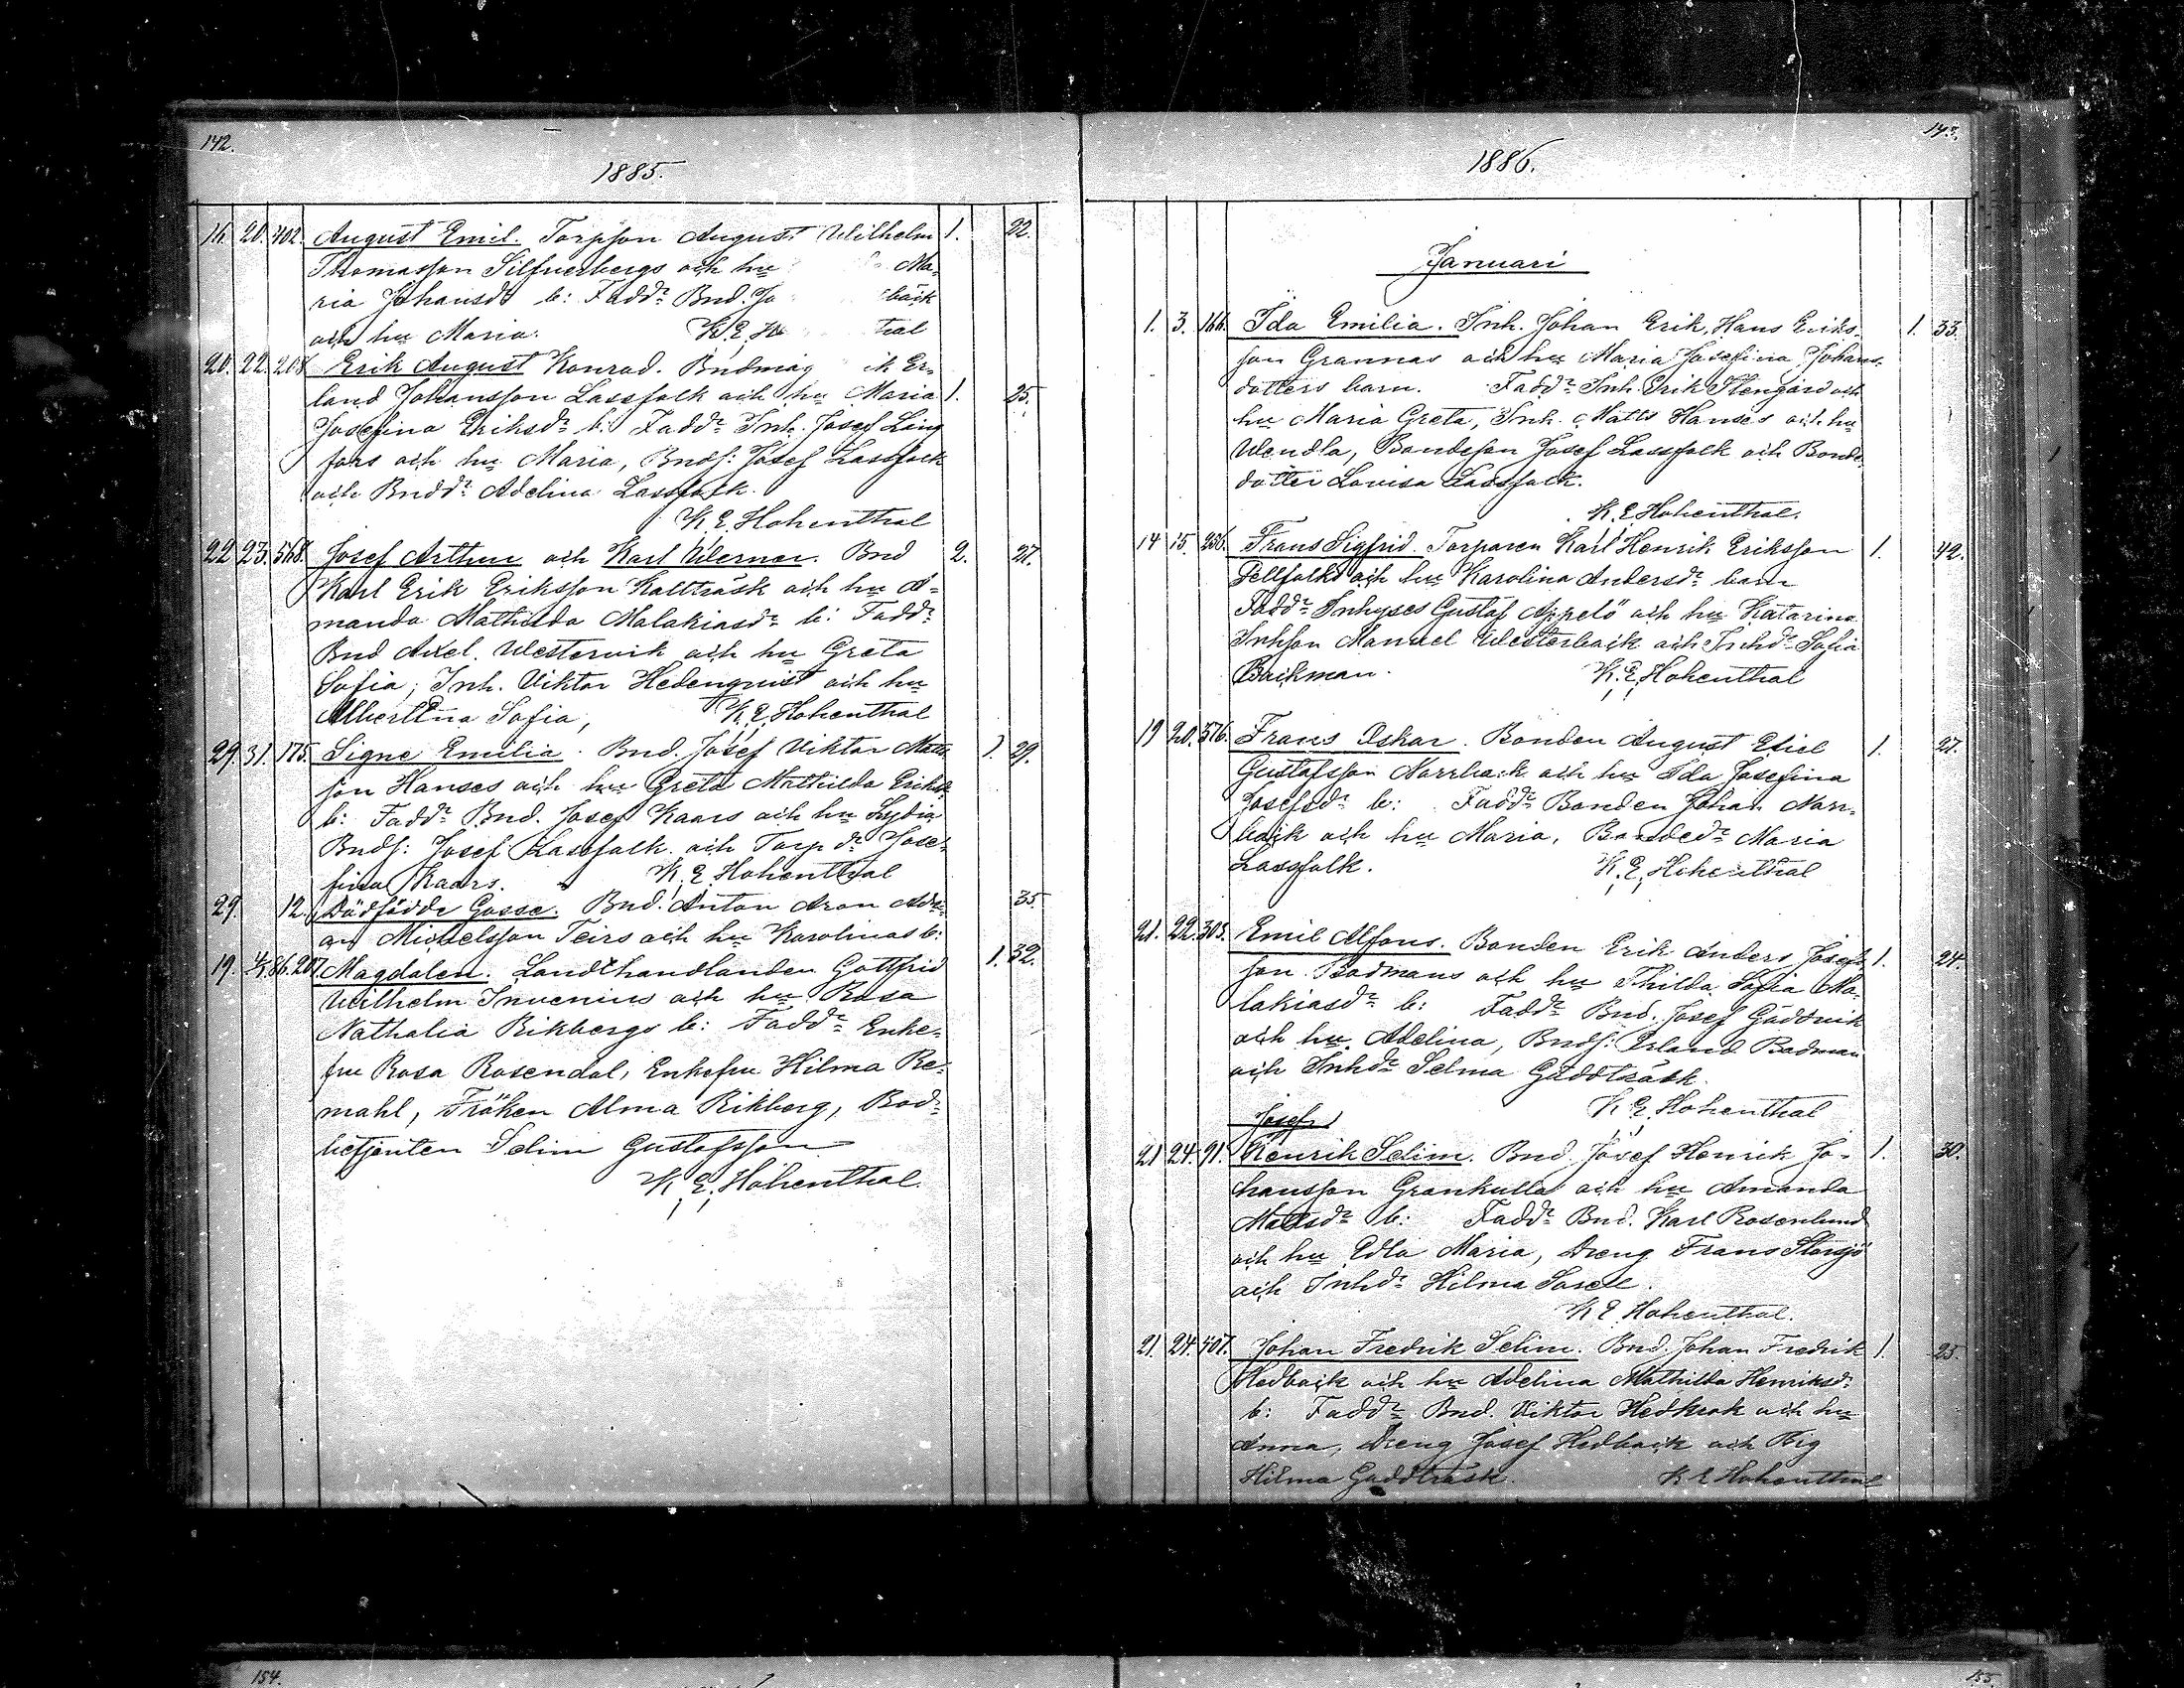 142.
1885.
16. 20. 402. August Emil. Torpson August Wilhelm 1. 22.
Thomasson Silfverbergs och hu Ma-
ria Johansdr b: Faddr Bnd. Jo back
och hu Maria. K. E. Ho thal
20. 22. 208 Erik August Konrad. Bndmåg Er-
land Johansson Lassfolk och hu Maria 1. 25.
Josefina Eriksdr b: Faddr Inh. Josef Lång
fors och hu Maria, Bnds: Josef Lassfolk
och Bnddr Adelina Lassfolk.
K. E. Hohenthal
22 23. 568. Josef Arthur och Karl Werner. Bnd 2. 27.
Karl Erik Eriksson Kallträsk och hu A-
manda Mathilda Malakiasdr b: Faddr
Bnd Axel Westervik och hu Greta
Sofia; Inh. Viktor Hedenqvist och hu
Albertina Sofia, K. E. Hohenthal
29. 31. 175. Signe Emilia. Bnd. Josef Viktor Matts 1. 29.
son Hanses och hu Greta Mathilda Eriksd
b: Faddr Bnd. Josef Kaars och hu Lydia
Bnds: Josef Lassfolk och Torpdr Jose-
fina Kaars. K. E. Hohenthal
29. 12. Dödfödde Gosse. Bnd. Anton Aron Adri- 35.
an Michelsson Teirs och hu Karolinas b:
19. 4/1 86. 207 Magdalen. Landthandlanden Gottfrid 1. 32.
Wilhelm Invenius och hu Rosa
Nathalia Rikbergs b: Faddr Enke-
fru Rosa Rosendal, Enkefru Hilma Re-
mahl, Fröken Alma Rikberg, Bod-
betjenten Selim Gustafsson
K. E. Hohenthal.
143.
1886.
Januari
1. 3. 166. Ida Emilia. Inh. Johan Erik Hans Eriks 1. 33.
son Grannas och hu Maria Josefina Johans-
dotters barn. Faddr Inh. Erik Stengård och
hu Maria Greta, Inh. Matts Hanses och hu
Wendla, Bondeson Josef Lassfolk och Bonde
dotter Lovisa Lassfolk.
K. E. Hohenthal.
14 15. 236. Frans Sigfrid. Torparen Karl Henrik Eriksson 1. 42.
Fellfolks och hu Karolina Andersdr barn
Faddr Inhyses Gustaf Appelö och hu Katarina
Inhson Manuel Westerback och Inhdr Sofia
Backman. K. E. Hohenthal
19 20. 576. Frans Oskar. Bonden August Eliel 1. 27.
Gustafsson Norrback och hu Ida Josefina
Josefsdr b: Faddr Bonden Johan Norr-
back och hu Maria, Bondedr Maria
Lassfolk. K. E. Hohenthal
21. 22. 305. Emil Alfons. Bonden Erik Anders Josefs 1. 24.
son Badmans och hu Thilda Sofia Ma-
lakiasdr b: Faddr Bnd. Josef Gäddvik
och hu Adelina, Bnds: Erland Badman
och Inhdr Selma Gäddträsk.
K. E. Hohenthal
Josef
21 24. 91. Henrik Selim. Bnd. Josef Henrik Jo- 1. 30.
hansson Grankulla och hu Amanda
Mattsdr b: Faddr Bnd. Karl Rosenlund
och hu Edla Maria, Dreng Frans Storsjö
och Inhdr Hilma
K. E. Hohenthal.
21. 24. 407. Johan Fredrik Selim. Bnd. Johan Fredrik 1. 25.
Hedback och hu Adelina Mathilda Henriksdr
b: Faddr Bnd. Viktor Hedkrok och hu
Anna, Dreng Josef Hedback och Pig
Hilma Gäddträsk. K. E. Hohenthal
154.
155.